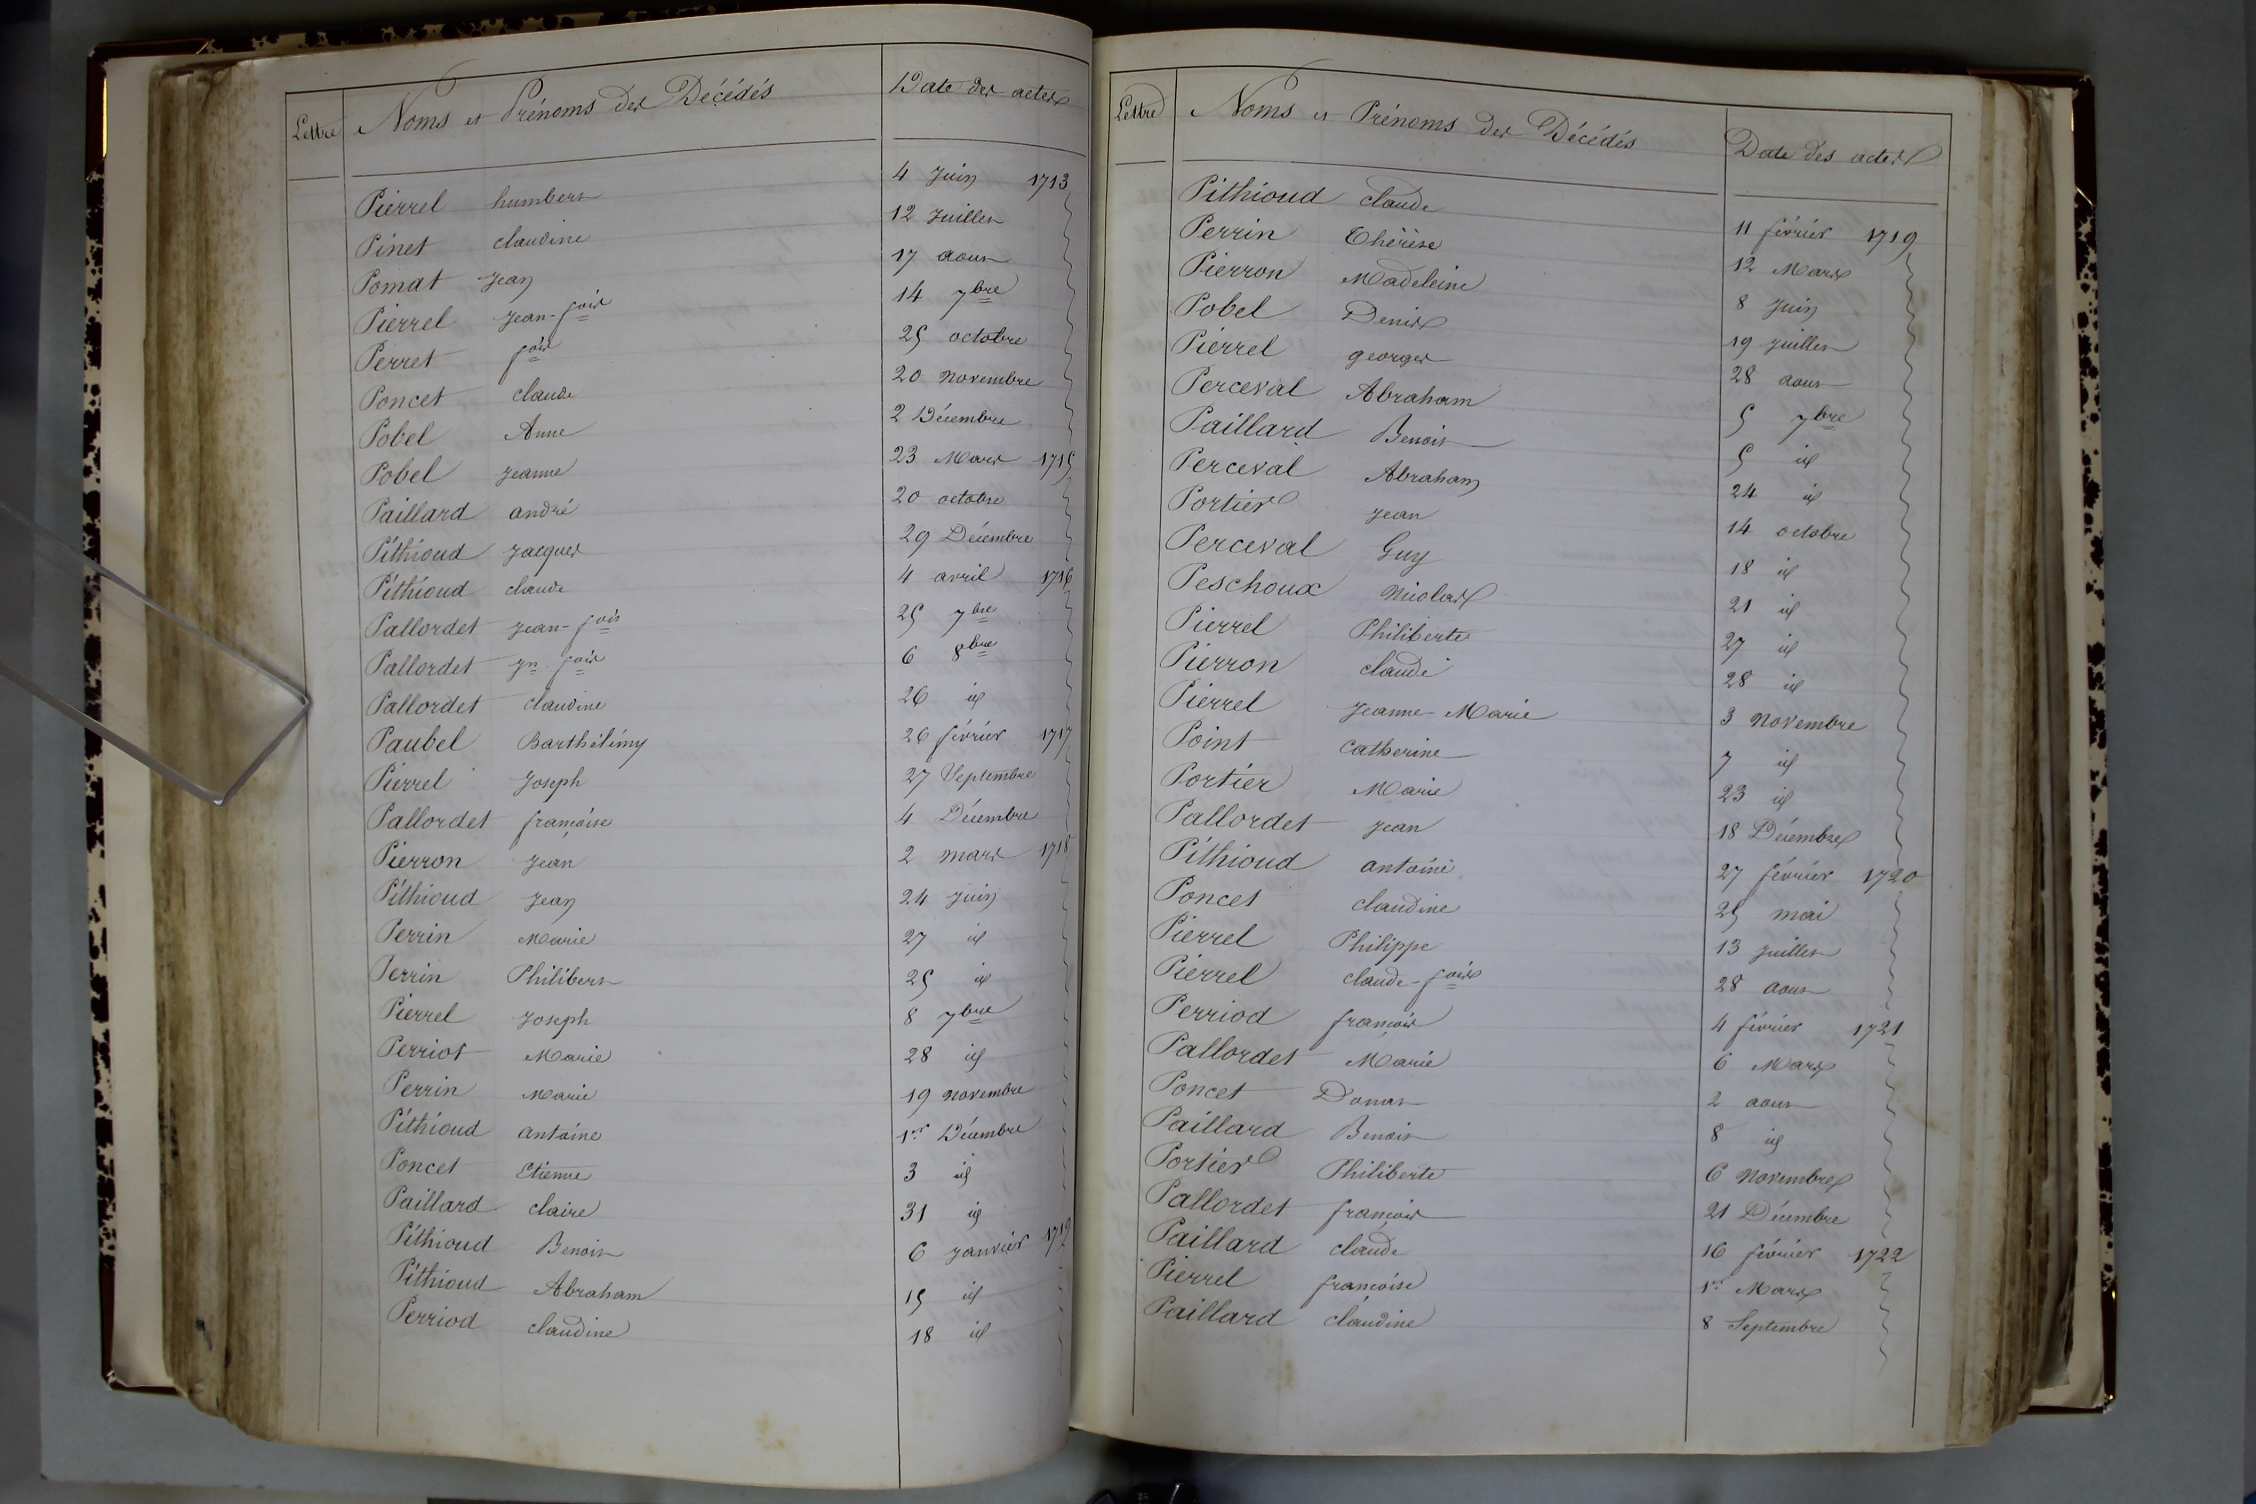 Lettre Noms et Prénoms des Décédés Date des actes
Pierrel humbert 4 Juin 1713
Pinet claudine 12 Juillet
Pomat Jean 17 aout
Pierrel Jean-fois 14 7bre
Perret fois 25 octobre
Poncet claude 20 novembre
Pobel Anne 2 Décembre
Pobel Jeanne 23 Mars 1715
Paillard andré 20 octobre
Pithioud Jacques 29 Décembre
Pithioud claude 4 avril 1716
Pallordet Jean-fois 25 7bre
Pallordet Jn fois 6 8bre
Pallordet claudine 26 id
Paubel Barthélémy 26 février 1717
Pierrel Joseph 27 Septembre
Pallordet françoise 4 Décembre
Pierron Jean 2 mars 1718
Pithioud Jean 24 Juin
Perrin Marie 27 id
Perrin Philibert 25 id
Pierrel Joseph 8 7bre
Perriot Marie 28 id
Perrin Marie 19 novembre
Pithioud antoine 1er Décembre
Poncet Etienne 3 id
Paillard claire 31 id
Pithioud Benoit 6 Janvier 1719
Pithioud Abraham 15 id
Perriod claudine 18 id
Lettre Noms et Prénoms des Décédés Date des actes
Pithioud claude 11 février 1719
Perrin Thérèse 12 Mars
Pierron Madeleine 8 Juin
Pobel Denis 19 Juillet
Pierrel georges 28 aout
Perceval Abraham 5 7bre
Paillard Benoit 5 id
Perceval Abraham 24 id
Portier Jean 14 octobre
Perceval Guy 18 id
Peschoux Nicolas 21 id
Pierrel Philiberte 27 id
Pierron claude 28 id
Pierrel Jeanne-Marie 3 Novembre
Point catherine 7 id
Portier Marie 23 id
Pallordet Jean 18 Décembre
Pithioud antoine 27 février 1720
Poncet claudine 25 mai
Pierrel Philippe 13 Juillet
Pierrel claude-fois 28 aout
Perriod françois 4 février 1721
Pallordet Marie 6 Mars
Poncet Donat 2 aout
Paillard Benoit 8 id
Portier Philiberte 6 Novembre
Pallordet françois 21 Décembre
Paillard claude 16 février 1722
Pierrel françoise 1er Mars
Paillard claudine 8 Septembre